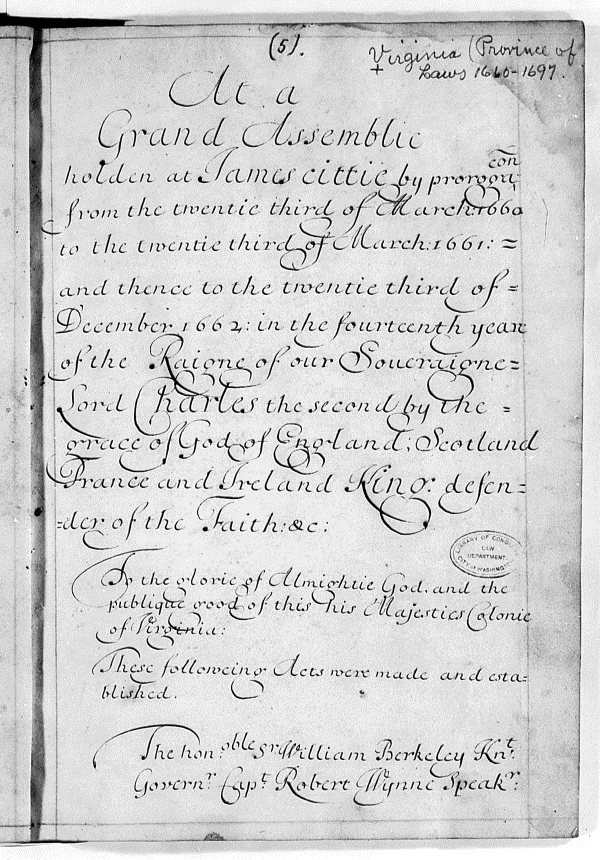 (5).
Virginia (Province of
Laws 1660-1697.
At a
Grand Assemblie
holden at James cittie by prorogacōn
from the twentie third of March:1660
to the twentie third of March:1661: =
and thence to the twentie third of =
December 1662: in the fourteenth year
of the Raigne of our Soueraigne=
Lord Charles the second by the =
grace of God of England; Scotland
France and Ireland King: defen=
=der of the Faith:&c:
LIBRARY OF CONGRESS
LAW
DEPARTMENT
CITY OF WASHINGTON
To the glorie of Almightie God. and the
publique good of this his Majesties Colonie
of Virginia:
These followeing Acts were made and esta=
blished.
The hon:oble Sr William Berkeley Knt.
Governr. Capt. Robert Wynne Speakr: